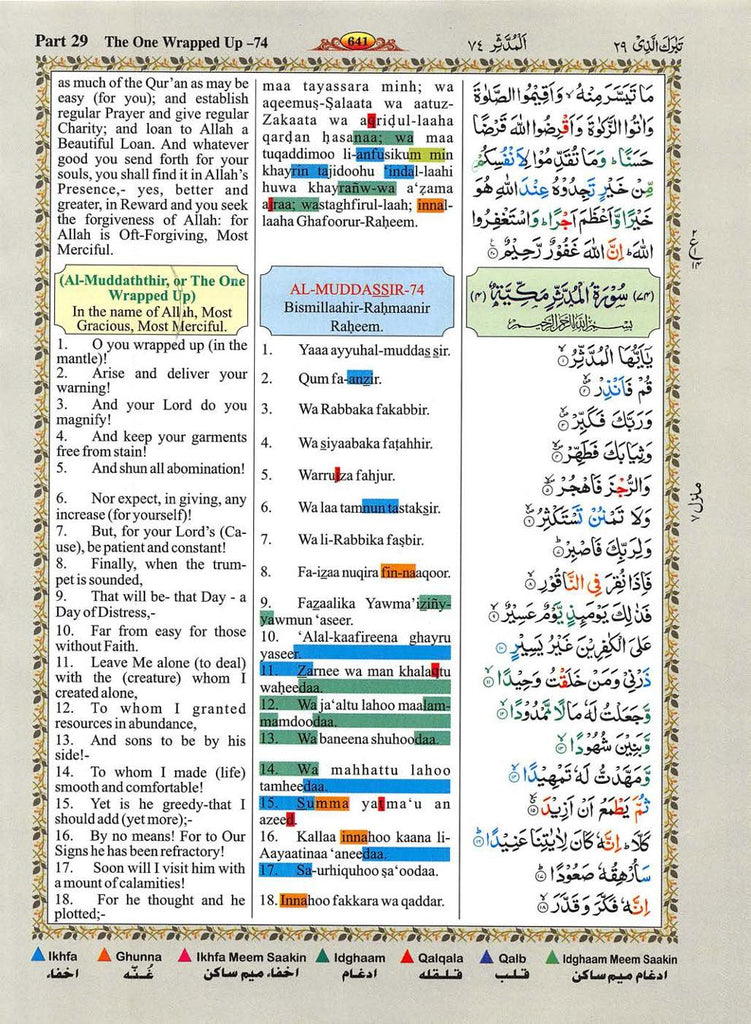 Part 29 The One Wrapped Up –74
641
اَلْمُدَّثِّر ٧٤
تَبٰرَكَ الَّذِىْ ٢٩
as much of the Qur'an as may be
easy (for you); and establish
regular Prayer and give regular
Charity; and loan to Allah a
Beautiful Loan. And whatever
good you send forth for your
souls, you shall find it in Allah's
Presence,- yes, better and
greater, in Reward and you seek
the forgiveness of Allah: for
Allah is Oft-Forgiving, Most
Merciful.
(Al-Muddaththir, or The One
Wrapped Up)
In the name of Allah, Most
Gracious, Most Merciful.
1. O you wrapped up (in the
mantle)!
2. Arise and deliver your
warning!
3. And your Lord do you
magnify!
4. And keep your garments
free from stain!
5. And shun all abomination!
6. Nor expect, in giving, any
increase (for yourself)!
7. But, for your Lord's (Ca-
use), be patient and constant!
8. Finally, when the trum-
pet is sounded,
9. That will be- that Day - a
Day of Distress,-
10. Far from easy for those
without Faith.
11. Leave Me alone (to deal)
with the (creature) whom I
created alone,
12. To whom I granted
resources in abundance,
13. And sons to be by his
side!-
14. To whom I made (life)
smooth and comfortable!
15. Yet is he greedy-that I
should add (yet more);-
16. By no means! For to Our
Signs he has been refractory!
17. Soon will I visit him with
a mount of calamities!
18. For he thought and he
plotted;-
maa tayassara minh; wa
aqeemuṣ-Ṣalaata wa aatuz-
Zakaata wa aqriḍul-laaha
qarḍan ḥasanaa; wa maa
tuqaddimoo li-anfusikum min
khayrin tajidoohu 'indal-laahi
huwa khayrañw-wa a'ẓama
ajraa; wastaghfirul-laah; innal-
laaha Ghafoorur-Raḥeem.
AL-MUDDASSIR-74
Bismillaahir-Raḥmaanir
Raḥeem.
1. Yaaa ayyuhal-muddas sir.
2. Qum fa-anzir.
3. Wa Rabbaka fakabbir.
4. Wa siyaabaka faṭahhir.
5. Warrujza fahjur.
6. Wa laa tamnun tastaksir.
7. Wa li-Rabbika faṣbir.
8. Fa-izaa nuqira fin-naaqoor.
9. Fazaalika Yawma'iziñy-
yawmun 'aseer.
10. 'Alal-kaafireena ghayru
yaseer.
11. Zarnee wa man khalaqtu
waḥeedaa.
12. Wa ja'altu lahoo maalam-
mamdoodaa.
13. Wa baneena shuhoodaa.
14. Wa mahhattu lahoo
tamheedaa.
15. Summa yaṭma'u an
azeed.
16. Kallaa innahoo kaana li-
Aayaatinaa 'aneedaa.
17. Sa-urhiquhoo ṣa'oodaa.
18. Innahoo fakkara wa qaddar.
مَا تَيَسَّرَ مِنْهُ ۙ وَاَقِيْمُوا الصَّلٰوةَ
وَاٰتُوا الزَّكٰوةَ وَاَقْرِضُوا اللّٰهَ قَرْضًا
حَسَنًا ؕ وَمَا تُقَدِّمُوْا لِاَنْفُسِكُمْ
مِّنْ خَيْرٍ تَجِدُوْهُ عِنْدَ اللّٰهِ هُوَ
خَيْرًا وَّاَعْظَمَ اَجْرًا ؕ وَاسْتَغْفِرُوا
اللّٰهَ ؕ اِنَّ اللّٰهَ غَفُوْرٌ رَّحِيْمٌ ۟
(٧٤) سُوْرَةُ الْمُدَّثِّرِ مَكِّيَّةٌ (٤)
بِسْمِ اللّٰهِ الرَّحْمٰنِ الرَّحِيْمِ
يٰۤاَيُّهَا الْمُدَّثِّرُ ۙ١
قُمْ فَاَنْذِرْ ۙ٢
وَرَبَّكَ فَكَبِّرْ ۙ٣
وَثِيَابَكَ فَطَهِّرْ ۙ٤
وَالرُّجْزَ فَاهْجُرْ ۙ٥
وَلَا تَمْنُنْ تَسْتَكْثِرُ ۙ٦
وَلِرَبِّكَ فَاصْبِرْ ؕ٧
فَاِذَا نُقِرَ فِى النَّاقُوْرِ ۙ٨
فَذٰلِكَ يَوْمَئِذٍ يَّوْمٌ عَسِيْرٌ ۙ٩
عَلَى الْكٰفِرِيْنَ غَيْرُ يَسِيْرٍ ١٠
ذَرْنِىْ وَمَنْ خَلَقْتُ وَحِيْدًا ۙ١١
وَّجَعَلْتُ لَهٗ مَالًا مَّمْدُوْدًا ۙ١٢
وَّبَنِيْنَ شُهُوْدًا ۙ١٣
وَّمَهَّدْتُّ لَهٗ تَمْهِيْدًا ۙ١٤
ثُمَّ يَطْمَعُ اَنْ اَزِيْدَ ۙ١٥
كَلَّا ؕ اِنَّهٗ كَانَ لِاٰيٰتِنَا عَنِيْدًا ؕ١٦
سَاُرْهِقُهٗ صَعُوْدًا ؕ١٧
اِنَّهٗ فَكَّرَ وَقَدَّرَ ۙ١٨
٢ ع ١٤
منزل ٧
Ikhfa Ghunna Ikhfa Meem Saakin Idghaam Qalqala Qalb Idghaam Meem Saakin
اخفاء غُنّه اخفاء میم ساکن ادغام قلقله قلب ادغام میم ساکن